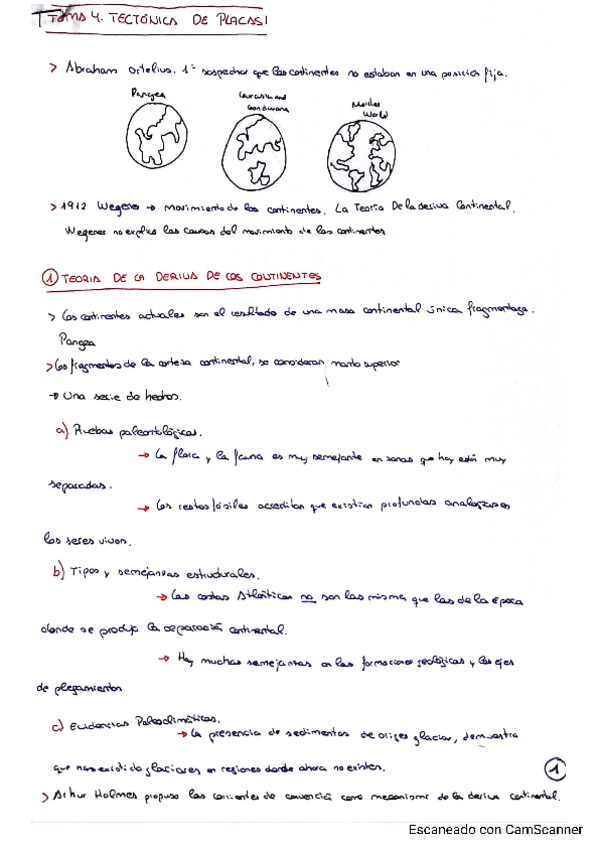 Tema 4. TECTÓNICA DE PLACAS I
> Abraham Ortelius. 1º sospechar que los continentes no estaban en una posición fija.
Pangea
Laurasia and
Gondwana
Modern
World
> 1912 Wegener → Movimiento de los continentes. La Teoria De la deriva Continental.
Wegener no explica las causas del movimiento de los continentes
① TEORIA DE LA DERIVA DE LOS CONTINENTES
> Los continentes actuales son el resultado de una masa continental única fragmentaga.
Pangea
> Los fragmentos de la corteza continental, se consideran manto superior
→ Una serie de hechos.
a) Pruebas paleontológicas.
→ La flora y la fauna es muy semejante en zonas que hoy está muy
separadas.
→ Los restos fósiles acreditan que existian profundas analogias en
los seres vivos.
b) Tipos y semejanzas estructurales.
→ Las costas Atlánticas no son las misma que las de la época
donde se produjo la separación continental.
→ Hay muchas semejanzas en las formaciones geológicas y los ejes
de plegamientos
c) Evidencias Paleoclimáticas.
→ La presencia de sedimentos de origen glaciar, demuestra
que han existido glaciares en regiones donde ahora no existen.
①
> Arthur Holmes propuso las corrientes de convección como mecanismo de la deriva continental.
Escaneado con CamScanner